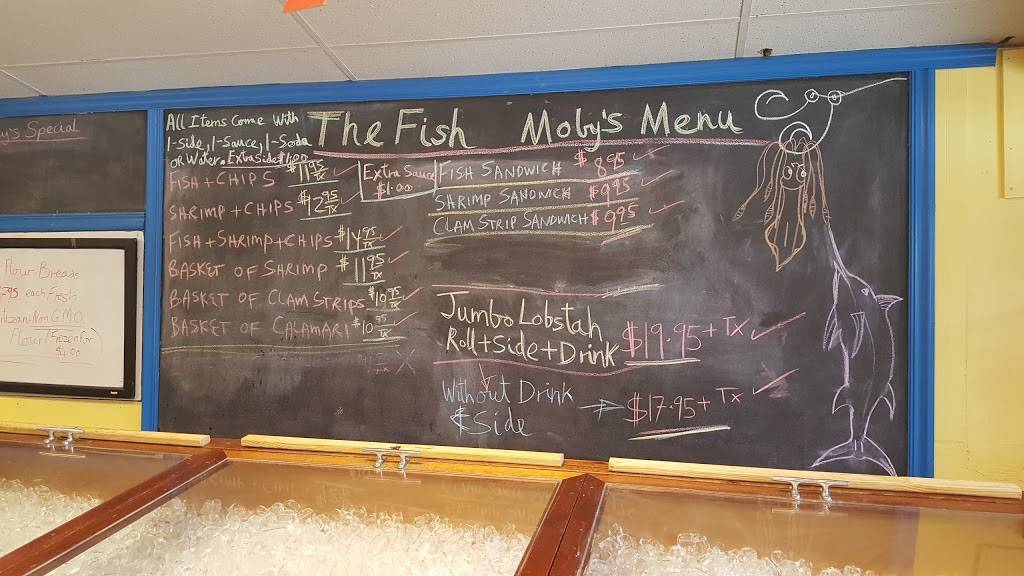 y's Special
All Items Come With
1-Side, 1-Sauce, 1-Soda
OR Water. Extra Side $1.00
The Fish Moby's Menu
FISH + CHIPS $11.95 TX
SHRIMP + CHIPS $12.95 TX
FISH + SHRIMP + CHIPS $14.95 TX
BASKET OF SHRIMP $11.95 TX
BASKET OF CLAM STRIPS $10.95 TX
BASKET OF CALAMARI $10.95 TX
Extra Sauce
$1.00
FISH SANDWICH $8.95
SHRIMP SANDWICH $9.95
CLAM STRIP SANDWICH $9.95
Jumbo Lobstah
Roll + Side + Drink $19.95 + Tx
Without Drink
& Side $17.95 + Tx
Flour Breads
.95 each Fresh
Non GMO
Flour
$4.00